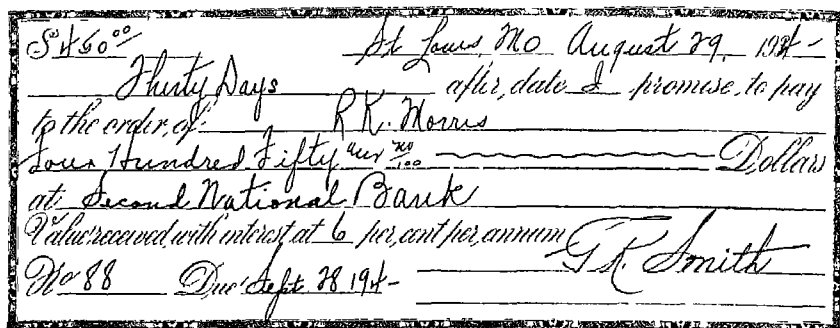 $450⁰⁰ St Louis, Mo August 29, 194-
Thirty Days after date I promise to pay
to the order of R K. Morris
Four Hundred Fifty and no/100 Dollars
at Second National Bank
Value received with interest at 6 per cent per annum
G K. Smith
No 88 Due Sept. 28 194-